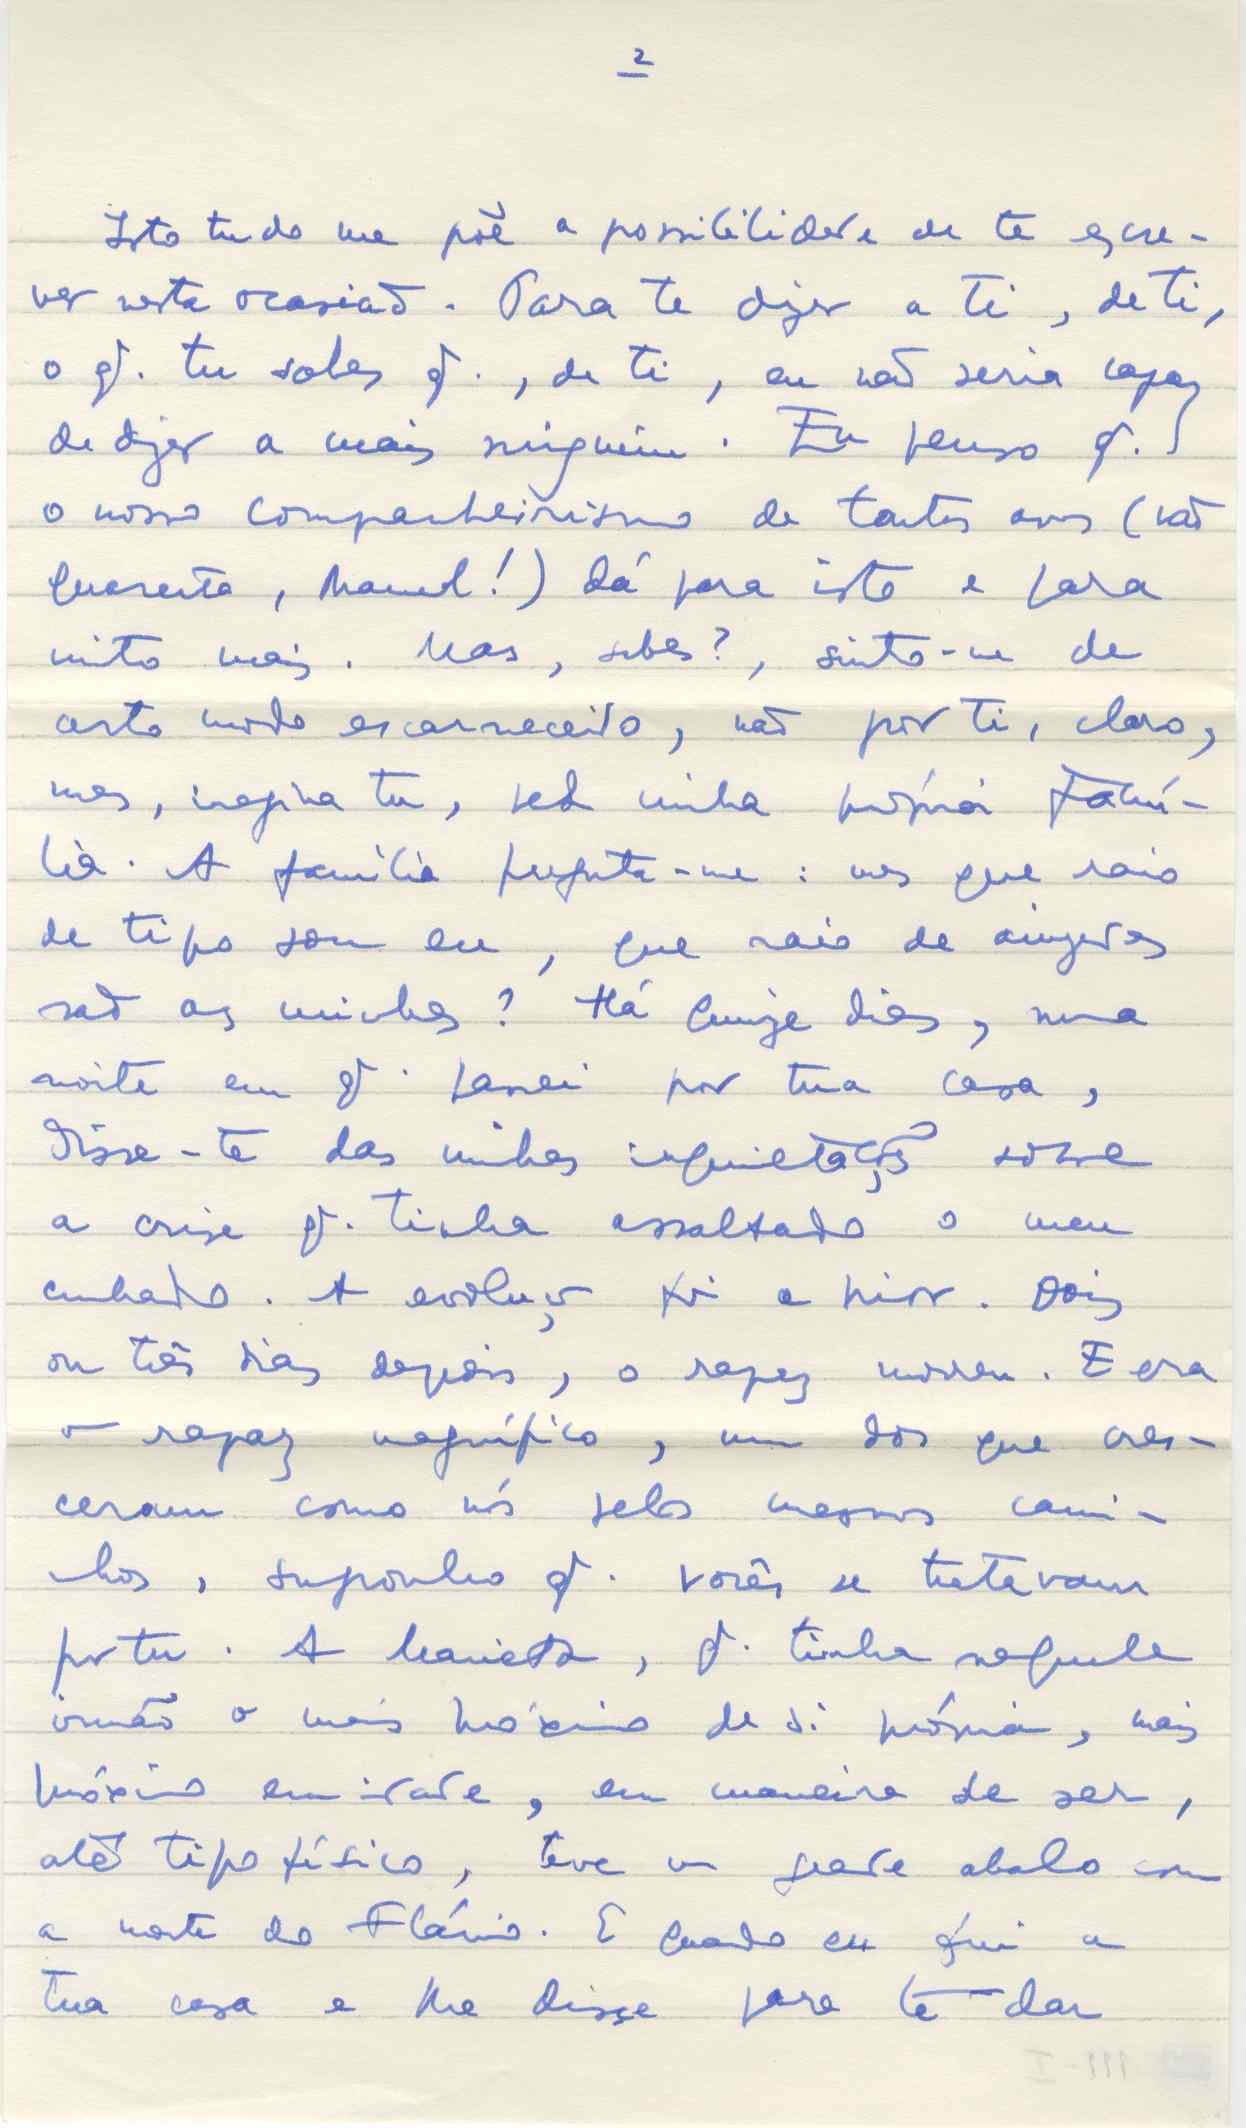 2
Isto tudo me põe a possibilidade de te escre-
ver nesta ocasião. Para te dizer a ti, de ti,
o q. tu sabes q., de ti, eu não seria capaz
de dizer a mais ninguém. Eu penso q.
o nosso companheirismo de tantos anos (vão
quarenta, Manuel!) dá para isto e para
muito mais. Mas, sabes?, sinto-me de
certo modo escarnecido, não por ti, claro,
mas, imagina tu, pela minha própria famí-
lia. A família pergunta-me: mas que raio
de tipo sou eu, que raio de amizades
são as minhas? Há quinze dias, numa
noite em q. passei por tua casa,
disse-te das minhas inquietações sobre
a crise q. tinha assaltado o meu
cunhado. A evolução foi a pior. Dois
ou três dias depois, o rapaz morreu. E era
o rapaz magnífico, um dos que cres-
ceram como nós pelos mesmos cami-
nhos, suponho q. vocês se tratavam
por tu. A Marieta, q. tinha naquele
irmão o mais próximo de si própria, mais
próximo em idade, em maneira de ser,
até tipo físico, teve um grande abalo com
a morte do Flávio. E quando eu fui a
tua casa e lhe disse para te dar
III-I